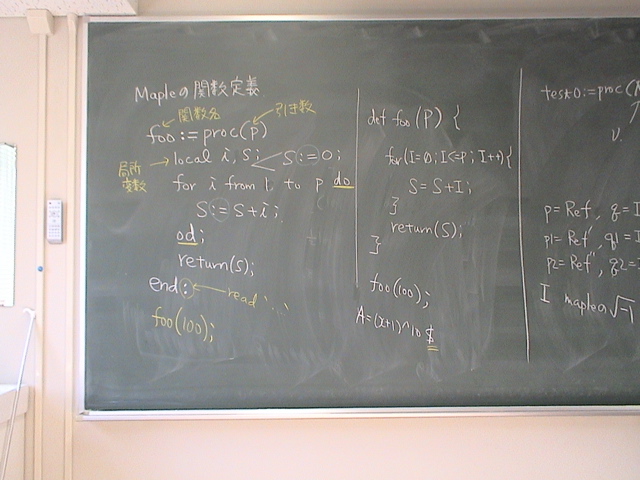 Mapleの関数定義
関数名 引き数
foo := proc(p)
局所変数
local i, s; S := 0;
for i from 1 to p do
S := S + i;
od;
return(S);
end:
read
foo(100);
def foo(P) {
for(I=0; I<=p; I++){
S = S+I;
}
return(S);
}
foo(100);
A=(x+1)^10 $
test0:=proc(
v.
p = Ref, q = I
p1 = Ref', q1 = I
p2 = Ref', q2 = I
I mapleの√-1